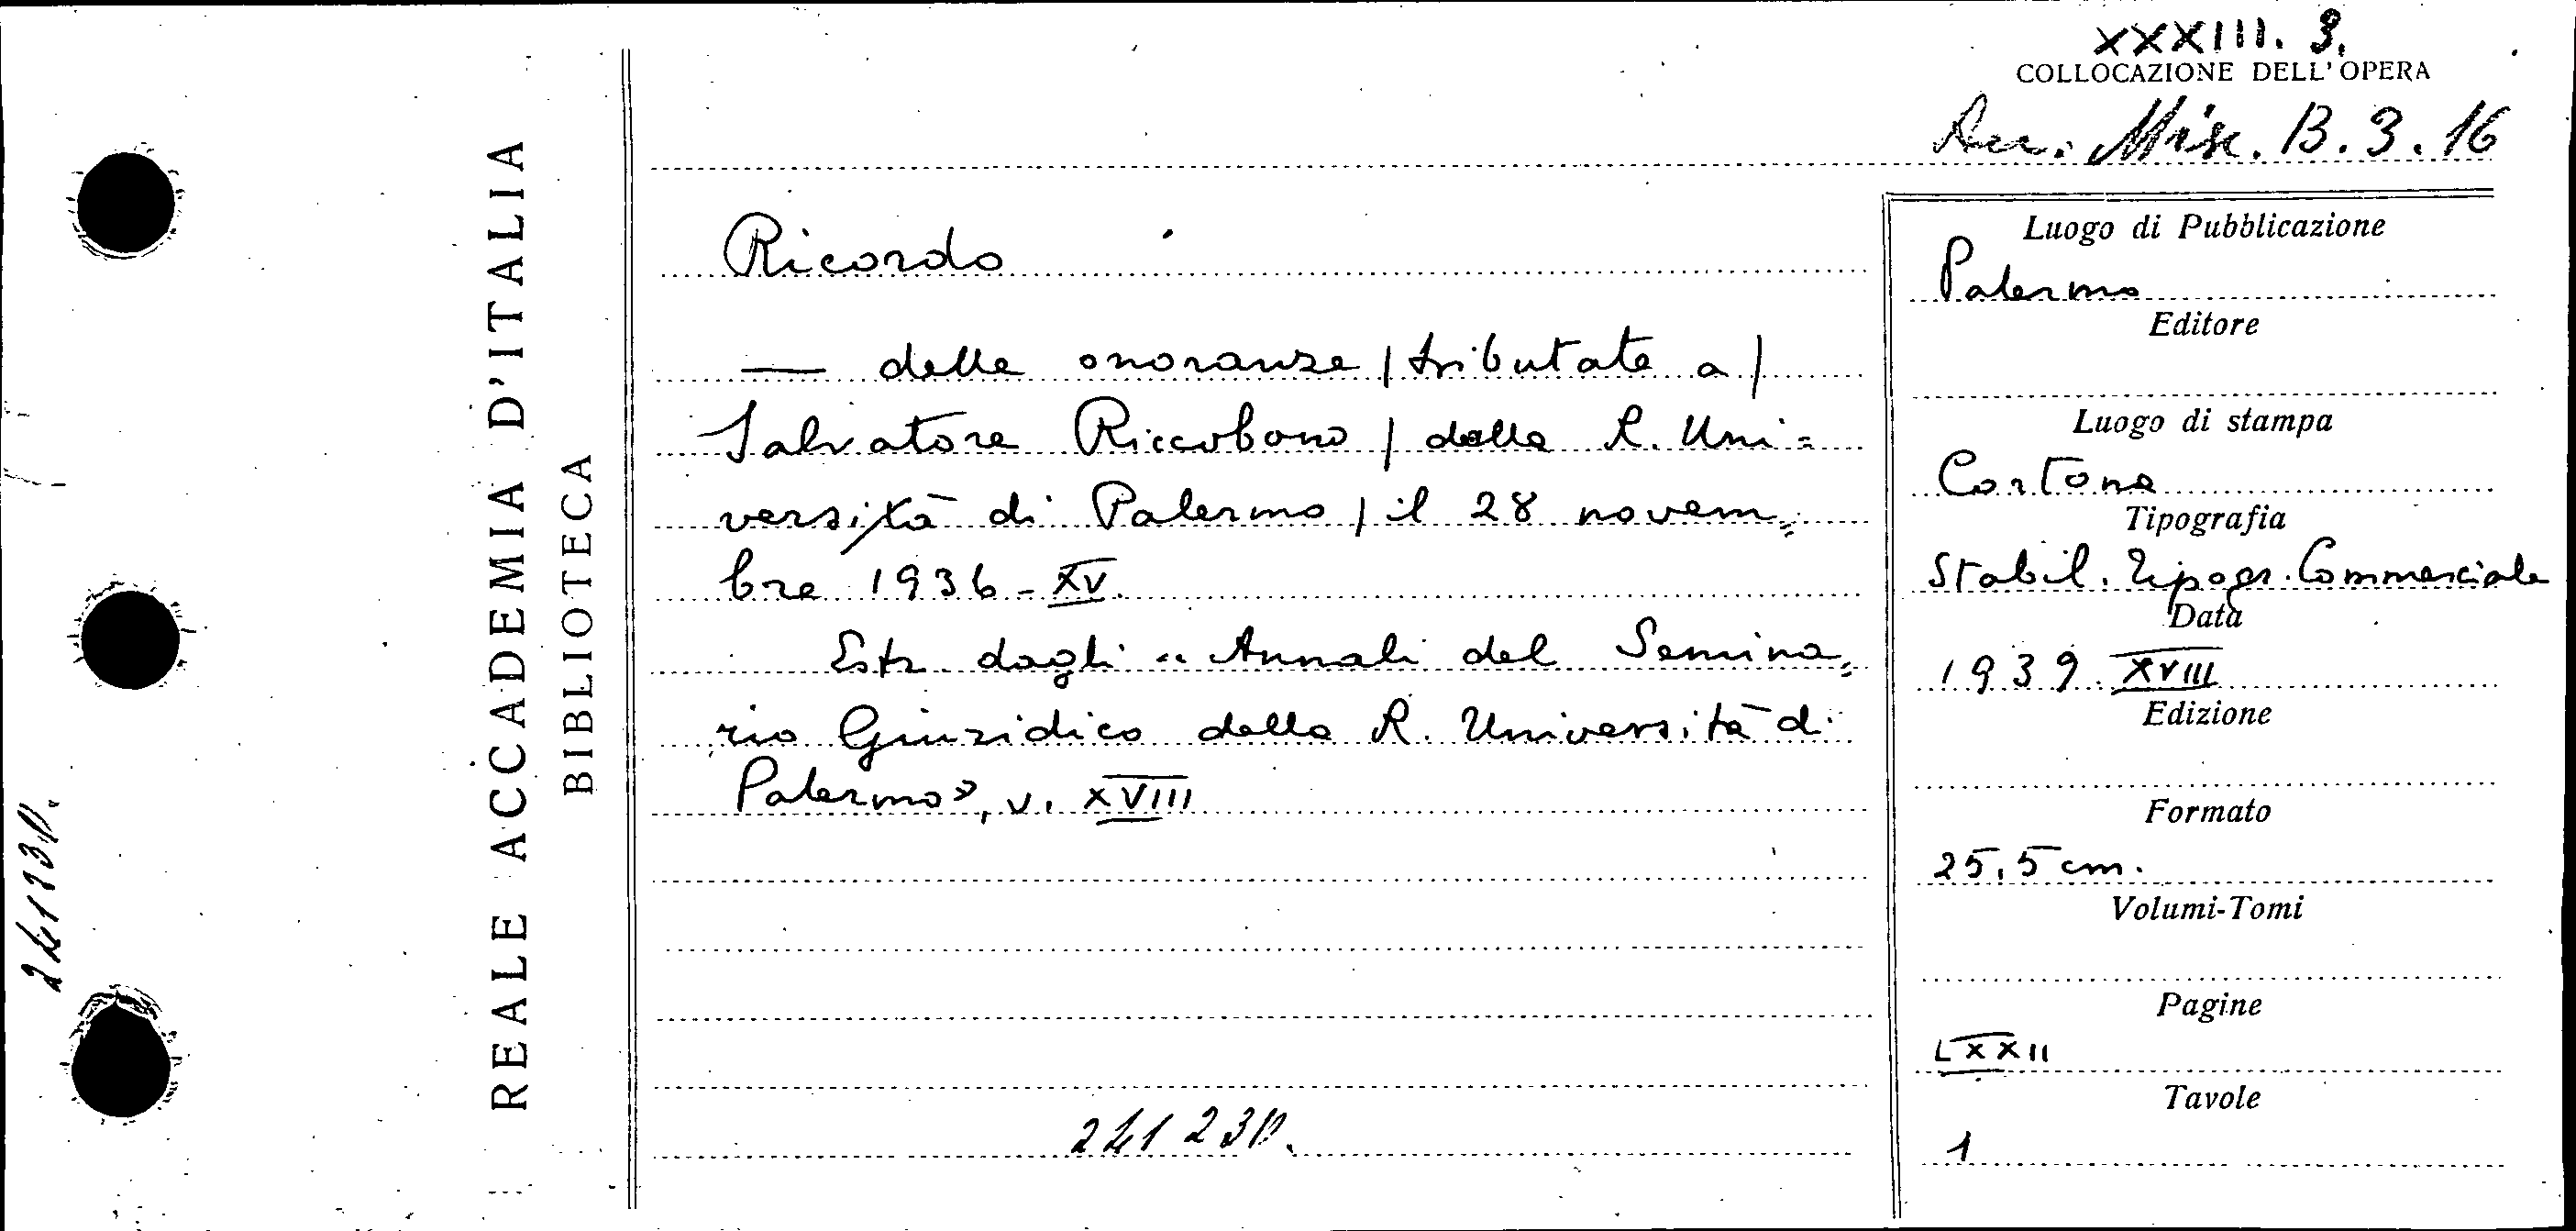 XXXIII. 3.
COLLOCAZIONE DELL'OPERA
Acc. Misc. B. 3. 16
REALE ACCADEMIA D'ITALIA
BIBLIOTECA
Ricordo
— delle onoranze | tributate a |
Salvatore Riccobono | dalla R. Uni=
versità di Palermo | il 28 novem=
bre 1936-XV.
Estr. dagli "Annali del Semina=
rio Giuridico della R. Università di
Palermo", v. XVIII
Luogo di Pubblicazione
Palermo
Editore
Luogo di stampa
Cortona
Tipografia
Stabil. Tipogr. Commerciale
Data
1939. XVIII
Edizione
Formato
25,5 cm.
Volumi-Tomi
Pagine
LXXII
Tavole
1